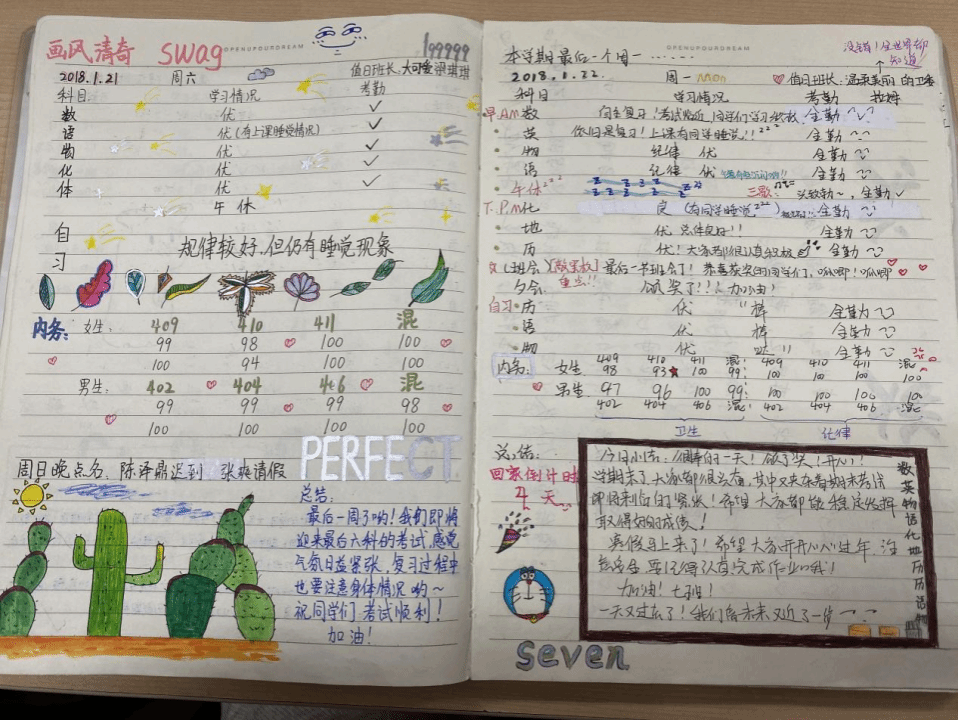 画风清奇 swag
OPENUPYOURDREAM
199999
2018.1.21 周六 值日班长:大可爱
科目 学习情况 考勤
数 优 ✓
语 优(有上课睡觉情况) ✓
物 优 ✓
化 优 ✓
体 优 ✓
午休
自习 规律较好,但仍有睡觉现象
内务: 女生: 409 410 411 混
99 98 100 100
100 94 100 100
男生: 402 404 406 混
99 99 99 98
100 100 100 100
PERFECT
周日晚点名 陈泽鼎迟到 张爽请假
总结:
最后一周了哟!我们即将
迎来最后六科的考试,感觉
气氛日益紧张,复习过程中
也要注意身体情况哟~
祝同学们考试顺利!
加油!
本学期最后一个周一······
OPENUPYOURDREAM
没错!全世界都
知道
2018.1.22. 周一 Mon 值日班长:温柔美丽的卫委
科目 学习情况 考勤
早AM数 自主复习!考试临近,同学们学习积极 全勤
英 依旧是复习!上课有同学睡觉!!zzz 全勤
物 纪律 优 全勤
语 纪律 优 全勤
午休zzz 三歌: 全勤✓
T.P.M化 良 (有同学睡觉zzz) 全勤
地 优 总体良好!! 全勤
历 优!大家都很认真积极 全勤
(班会) 最后一节班会了!恭喜获奖的同学们,呱唧!呱唧
重点!!
夕会 颁奖了!!!加油!
自习:历 优 "棒 全勤
语 优 棒 全勤
物 优 全勤
内务: 女生 409 410 411 混: 409 410 411 混:
98 93 100 99: 100 100 100 100
男生 97 96 100 99: 100 100 100 100
402 404 406 混: 402 404 406 混
卫生 纪律
总结:
回家倒计时
4天
今日小结:棒的一天!颁了奖!开心!
学期末了大家都很兴奋,其中又夹杂着期末考试
即将来临的紧张!希望大家都能稳定发挥
取得好的成绩!
寒假马上来了!希望大家开开心心过年,注
意安全,要记得认真完成作业哦!
加油!七班!
一天又过去了!我们离未来又近了一步
数英物语化地历历语物
seven